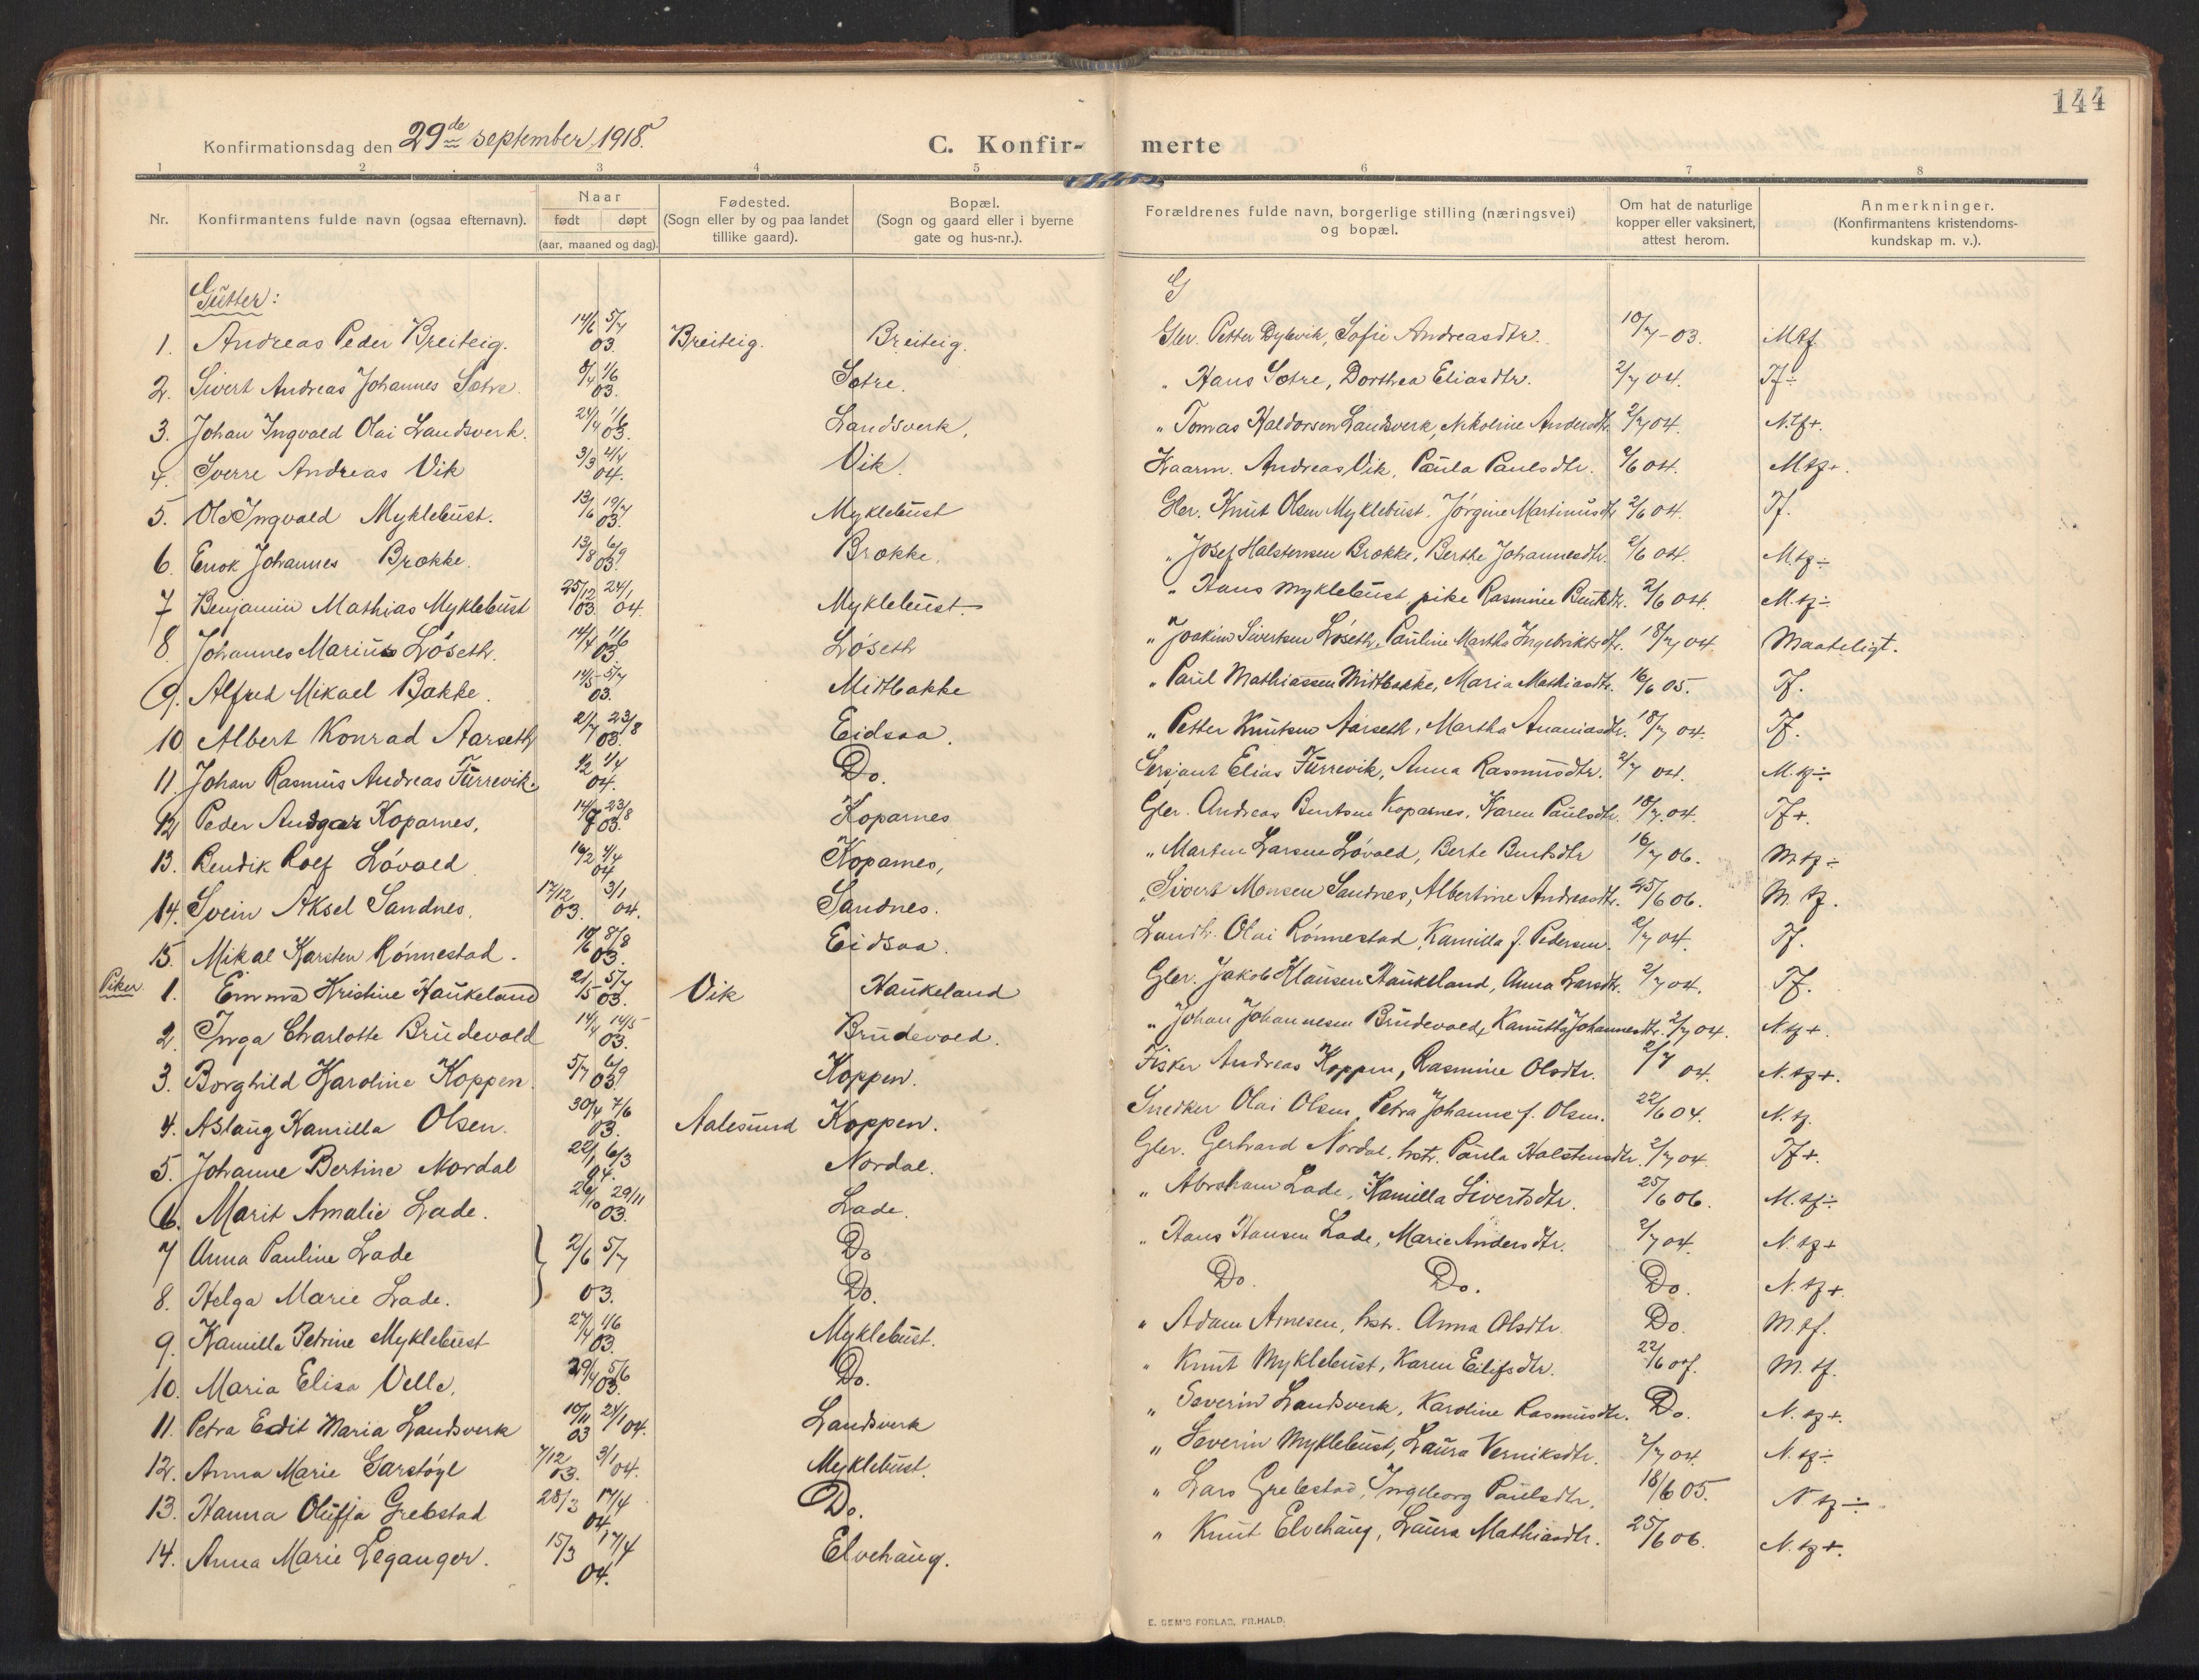 144
Konfirmationsdag den 29de september 1918.
C. Konfir- merte
1 2 3 4 5 6 7 8
Nr. Konfirmantens fulde navn (ogsaa efternavn). Naar født døpt (aar, maaned og dag). Fødested. (Sogn eller by og paa landet tillike gaard). Bopæl. (Sogn og gaard eller i byerne gate og hus-nr.). Forældrenes fulde navn, borgerlige stilling (næringsvei) og bopæl. Om hat de naturlige kopper eller vaksinert, attest herom. Anmerkninger. (Konfirmantens kristendoms-kundskap m. v.).
Gutter: G
1. Andreas Peder Breiteig. 14/6 5/7 03. Breiteig. Breiteig. Gbr. Petter Dybvik, Sofie Andreasdtr. 10/7-03. Mtf
2. Sivert Andreas Johannes Sætre. 8/4 1/6 03. Sætre. " Hans Sætre, Dorthea Eliasdtr. 2/7 04. Tf÷
3. Johan Ingvald Olai Landsverk. 24/4 1/6 03. Landsverk. " Tomas Haldorsen Landsverk, Nikoline Andersdtr. 2/7 04. N.tf+.
4. Sverre Andreas Vik 3/3 4/4 04. Vik. Andreas Vik, Paula Paulsdtr. 2/6 04. Mtf+.
5. Ole Ingvald Myklebust. 13/6 19/7 03. Myklebust Gbr. Knut Olsen Myklebust, Jørgine Martinusdtr. 2/6 04. Tf.
6. Enok Johannes Brække. 13/8 6/9 03. Brække. " Josef Halstensen Brække, Berthe Johannesdtr. 2/6 04. M.tf÷
7 Benjamin Mathias Myklebust 25/12 03. 24/1 04. Myklebust " Hans Myklebust, pike Rasmine Bentsdtr. 2/6 04. M.tf÷
8. Johannes Marius Løseth. 14/4 1/6 03. Løseth " Joakim Sivertsen Løseth, Pauline Martha Ingebriktsdtr. 18/7 04 Maateligt.
9. Alfred Mikael Bakke. 14/5 5/7 03. Midtbakke " Paul Mathiassen Midtbakke, Maria Mathiasdtr. 16/6 05. Tf.
10 Albert Konrad Aarseth 2/7 23/8 03. Eidsaa. " Petter Knutsen Aarseth, Martha Ananiasdtr. 18/7 04. Tf.
11. Johan Rasmus Andreas Furrevik. 1/2 4/4 04. Do. Sersjant Elias Furrevik, Anna Rasmusdtr. 2/7 04. M.tf÷
12. Peder Ansgar Koparnes, 14/7 23/8 03. Koparnes Gbr. Andreas Bentsen Koparnes, Karen Paulsdtr. 18/7 04. Tf+.
13. Bendik Rolf Løvold 16/2 4/4 04 Koparnes, " Martin Larsen Løvold, Berte Bentsdtr 16/7 06. M.tf÷
14. Svein Aksel Sandnes. 17/12 03. 3/1 04. Sandnes. " Sivert Monsen Sandnes, Albertine Andreasdtr. 25/6 06. M.tf.
15. Mikal Karsten Rønnestad. 10/6 8/8 03. Eidsaa. Landh. Olai Rønnestad, Kamilla f. Pedersen. 2/7 04. Tf.
Piker 1. Emma Kristine Haukeland 21/5 5/7 03. Vik Haukeland Gbr. Jakob Klausen Haukeland, Anna Larsdtr. 2/7 04. Tf.
2. Inga Charlotte Brudevold 14/4 14/5 03. Brudevold. " Johan Johannesen Brudevold, Johannesdtr. 2/7 04. N.tf+.
3. Borghild Karoline Koppen. 5/7 6/9 03. Koppen. Fisker Andreas Koppen, Rasmine Olsdtr. 2/7 04. N.tf+.
4. Aslaug Kamilla Olsen. 30/4 7/6 03. Aalesund Koppen. Snedker Olai Olsen, Petra Johanne f. Olsen. 22/6 04. N.tf.
5. Johanne Bertine Nordal 22/1 6/3 04. Nordal. Gbr. Gerhard Nordal, hstr. Paula Halstensdtr. 2/7 04. Tf+.
6. Marit Amalie Lade. 26/10 29/11 03. Lade. " Abraham Lade, Kamilla Sivertsdtr. 25/6 06. M.tf÷
7 Anna Pauline Lade 2/6 5/7 Do " Hans Hansen Lade, Marie Andersdtr. 2/7 04. N.tf+
8. Helga Marie Lade. 03. Do. Do. Do. Do. N.tf+.
9. Kamilla Petrine Myklebust 27/4 1/6 03. Myklebust. " Adam Arnesen, hstr. Anna Olsdtr. Do. M.tf.
10. Maria Elisa Velle. 29/4 5/6 03. Do. " Knut Myklebust, Karen Eilifsdtr. 22/6 07. M.tf.
11. Petra Edit Maria Landsverk 10/11 03 24/1 04. Landsverk " Severin Landsverk, Karoline Rasmusdtr. Do. N.tf+.
12. Anna Marie Garstøyl 7/12 03. 3/1 04. Myklebust. " Severin Myklebust, Laura Verniksdtr. 2/7 04. N.tf÷
13. Hanna Olufja Grebstad 28/3 17/4 04. Do. " Lars Grebstad, Ingeborg Paulsdtr. 18/6 05. N.tf÷.
14. Anna Marie Leganger. 15/3 17/4 04. Elvehaug. " Knut Elvehaug, Laura Mathiasdtr. 25/6 06. N.tf+.
E. SEM'S FORLAG, FR.HALD.